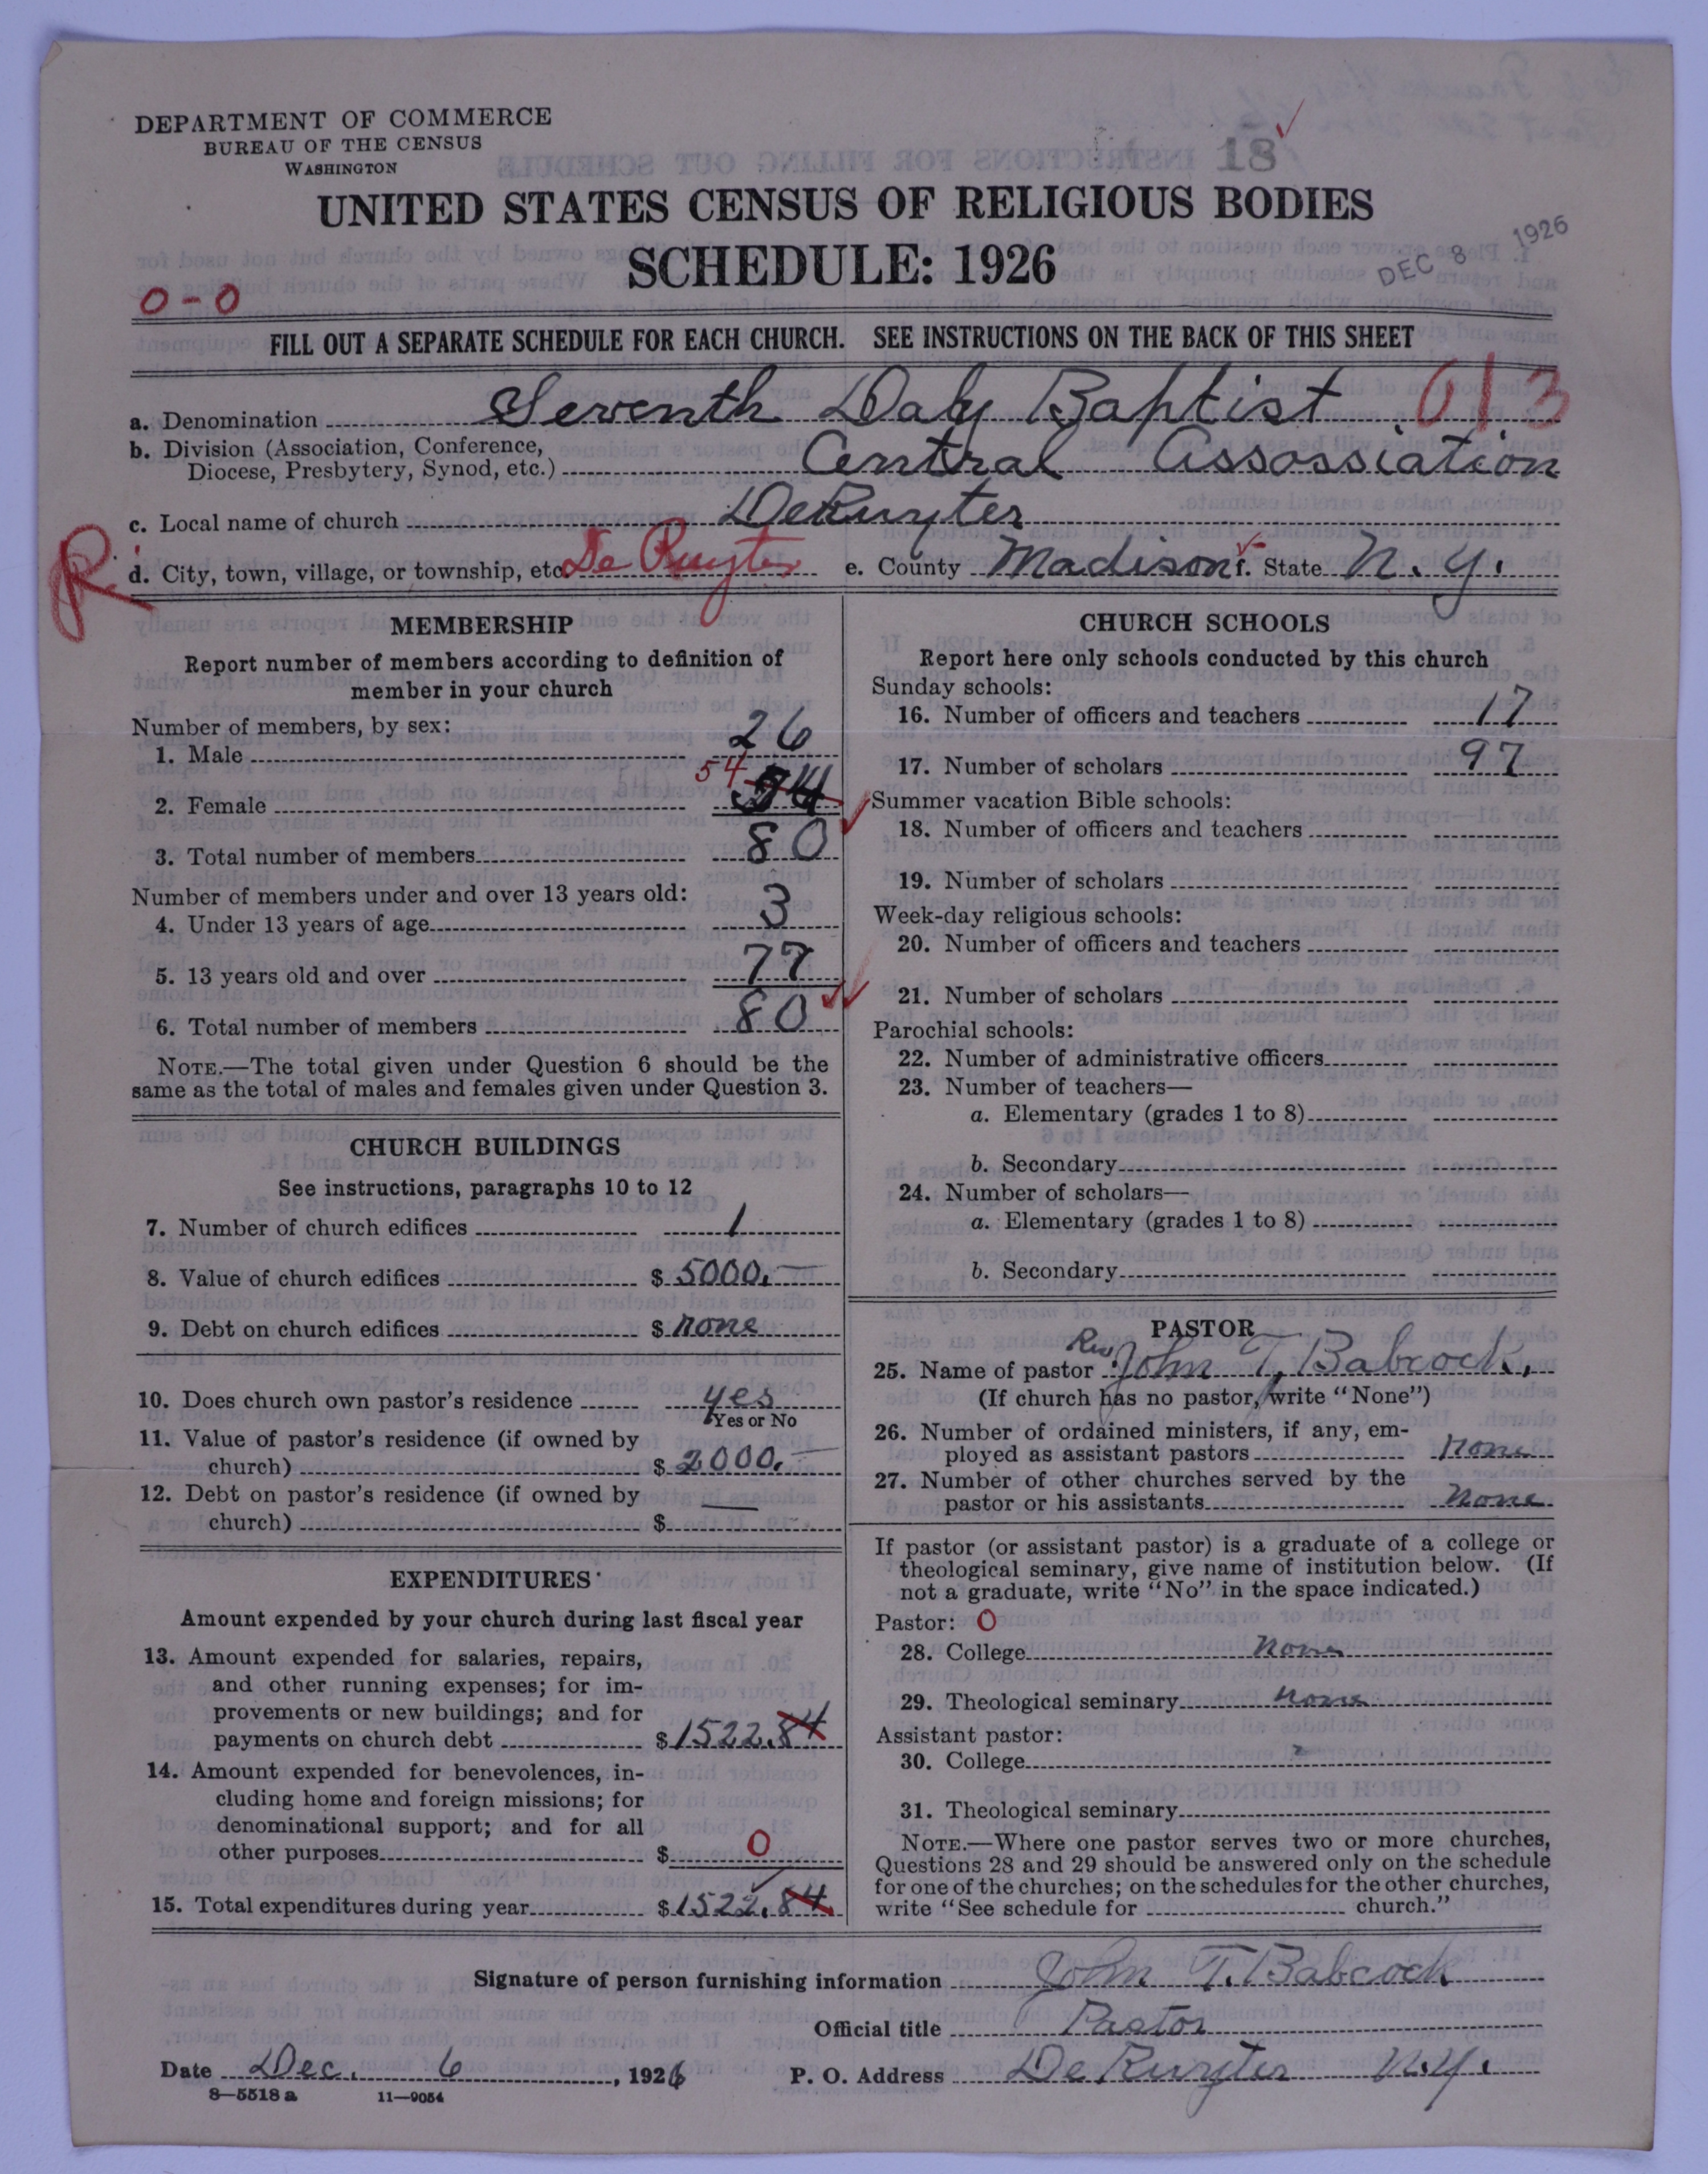 DEPARTMENT OF COMMERCE
BUREAU OF THE CENSUS
WASHINGTON
18
UNITED STATES CENSUS OF RELIGIOUS BODIES
SCHEDULE: 1926
DEC 8 1926
0-0
FILL OUT A SEPARATE SCHEDULE FOR EACH CHURCH. SEE INSTRUCTIONS ON THE BACK OF THIS SHEET
a. Denomination Seventh Day Baptist 613
b. Division (Association, Conference,
Diocese, Presbytery, Synod, etc.) Central Assossiation
c. Local name of church DeRuyter
R
d. City, town, village, or township, etc. De Ruyter e. County Madison f. State N. Y.
MEMBERSHIP
Report number of members according to definition of
member in your church
Number of members, by sex:
1. Male 26
2. Female 54 54
3. Total number of members 80
Number of members under and over 13 years old:
4. Under 13 years of age 3
5. 13 years old and over 77
6. Total number of members 80
NOTE.—The total given under Question 6 should be the
same as the total of males and females given under Question 3.
CHURCH BUILDINGS
See instructions, paragraphs 10 to 12
7. Number of church edifices 1
8. Value of church edifices $ 5000.—
9. Debt on church edifices $ none
10. Does church own pastor's residence yes
Yes or No
11. Value of pastor's residence (if owned by
church) $ 2000.—
12. Debt on pastor's residence (if owned by
church) $ —
EXPENDITURES
Amount expended by your church during last fiscal year
13. Amount expended for salaries, repairs,
and other running expenses; for im-
provements or new buildings; and for
payments on church debt $ 1522.84
14. Amount expended for benevolences, in-
cluding home and foreign missions; for
denominational support; and for all
other purposes $ 0
15. Total expenditures during year $ 1522.84
CHURCH SCHOOLS
Report here only schools conducted by this church
Sunday schools:
16. Number of officers and teachers 17
17. Number of scholars 97
Summer vacation Bible schools:
18. Number of officers and teachers
19. Number of scholars
Week-day religious schools:
20. Number of officers and teachers
21. Number of scholars
Parochial schools:
22. Number of administrative officers
23. Number of teachers—
a. Elementary (grades 1 to 8)
b. Secondary
24. Number of scholars—
a. Elementary (grades 1 to 8)
b. Secondary
PASTOR
25. Name of pastor Rev. John T. Babcock,
(If church has no pastor, write "None")
26. Number of ordained ministers, if any, em-
ployed as assistant pastors none
27. Number of other churches served by the
pastor or his assistants none
If pastor (or assistant pastor) is a graduate of a college or
theological seminary, give name of institution below. (If
not a graduate, write "No" in the space indicated.)
Pastor: 0
28. College none
29. Theological seminary none
Assistant pastor:
30. College
31. Theological seminary
NOTE.—Where one pastor serves two or more churches,
Questions 28 and 29 should be answered only on the schedule
for one of the churches; on the schedules for the other churches,
write "See schedule for church."
Signature of person furnishing information John T. Babcock
Official title Pastor
Date Dec. 6, 1926 P. O. Address De Ruyter N.Y.
8—5518 a 11—9054